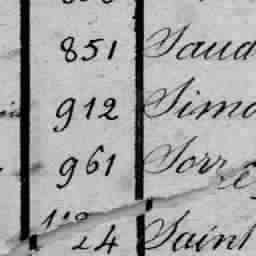 851 Saud
912 Simo
961
24 Saint